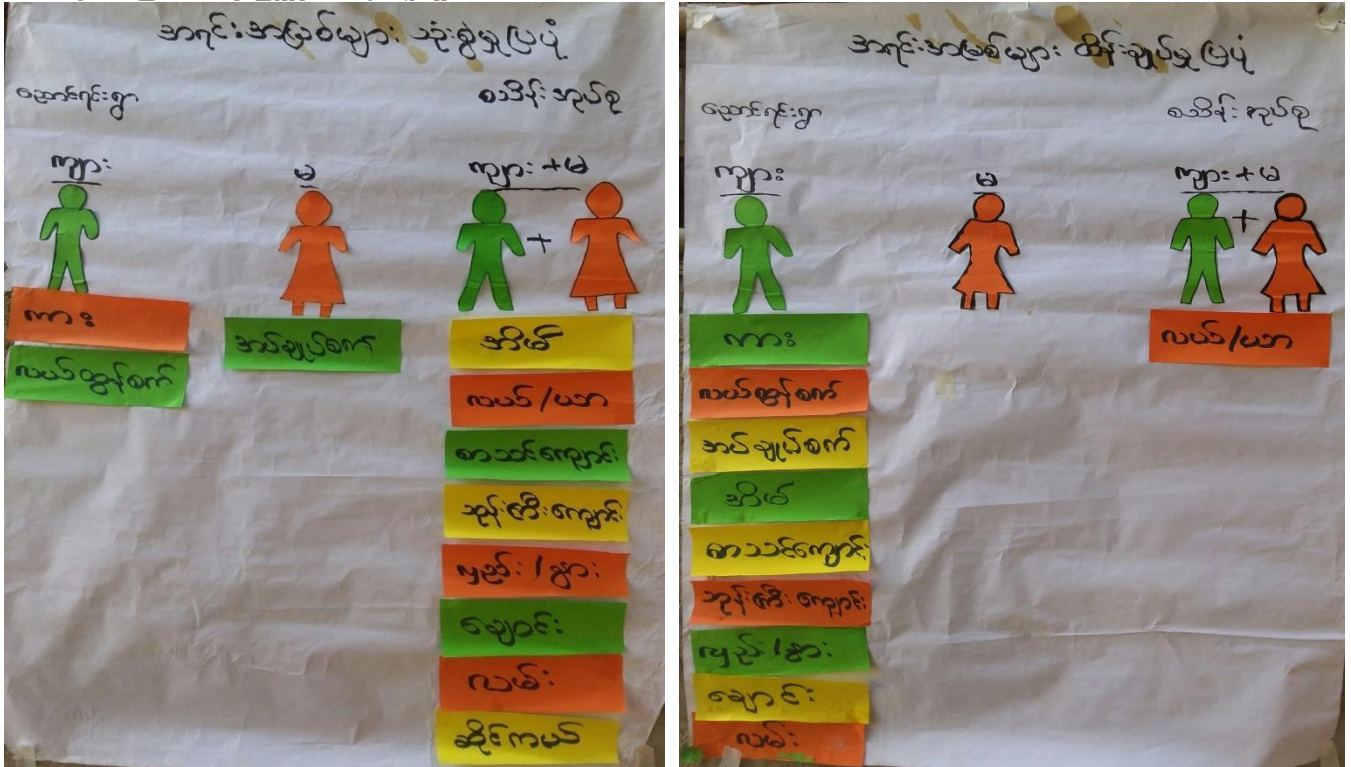 အရင်းအမြစ်များ သုံးစွဲမှုပြပုံ
ညောင်ရင်းရွာ
စသိန်းအုပ်စု
ကျား
မ
ကျား+မ
+
ကား
လယ်ထွန်စက်
အပ်ချုပ်စက်
အိမ်
လယ်/ယာ
စာသင်ကျောင်း
ဘုန်းကြီးကျောင်း
လှည်း/နွား
ချောင်း
လမ်း
ဆိုင်ကယ်
အရင်းအမြစ်များ ထိန်းချုပ်မှုပြပုံ
ညောင်ရင်းရွာ
စသိန်းအုပ်စု
ကျား
မ
ကျား+မ
+
ကား
လယ်ထွန်စက်
အပ်ချုပ်စက်
အိမ်
စာသင်ကျောင်း
ဘုန်းကြီးကျောင်း
လှည်း/နွား
ချောင်း
လမ်း
လယ်/ယာ